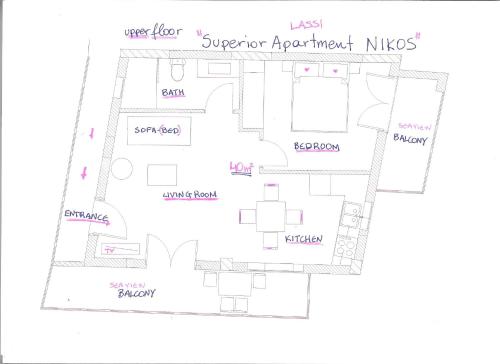 LASSI
upperfloor "Superior Apartment NIKOS"
BATH
SOFA-(BED)
BEDROOM
SEAVIEW
BALCONY
40m²
LIVINGROOM
ENTRANCE
KITCHEN
TV
SEAVIEW
BALCONY